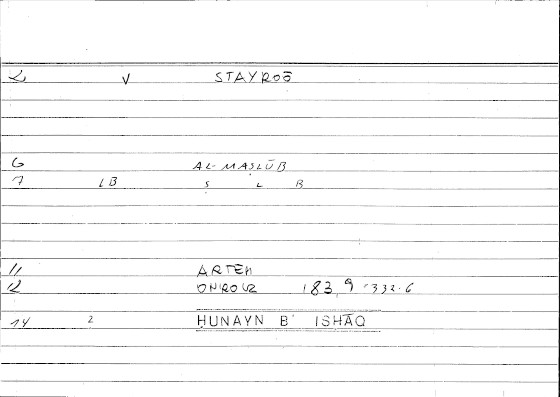 2 V STAYROō
6 AL-MAṢLŪB
7 1B Ṣ L B
11 ARTEM
12 ONIROCR 183,9 332.6
14 2 ḤUNAYN B ISḤĀQ